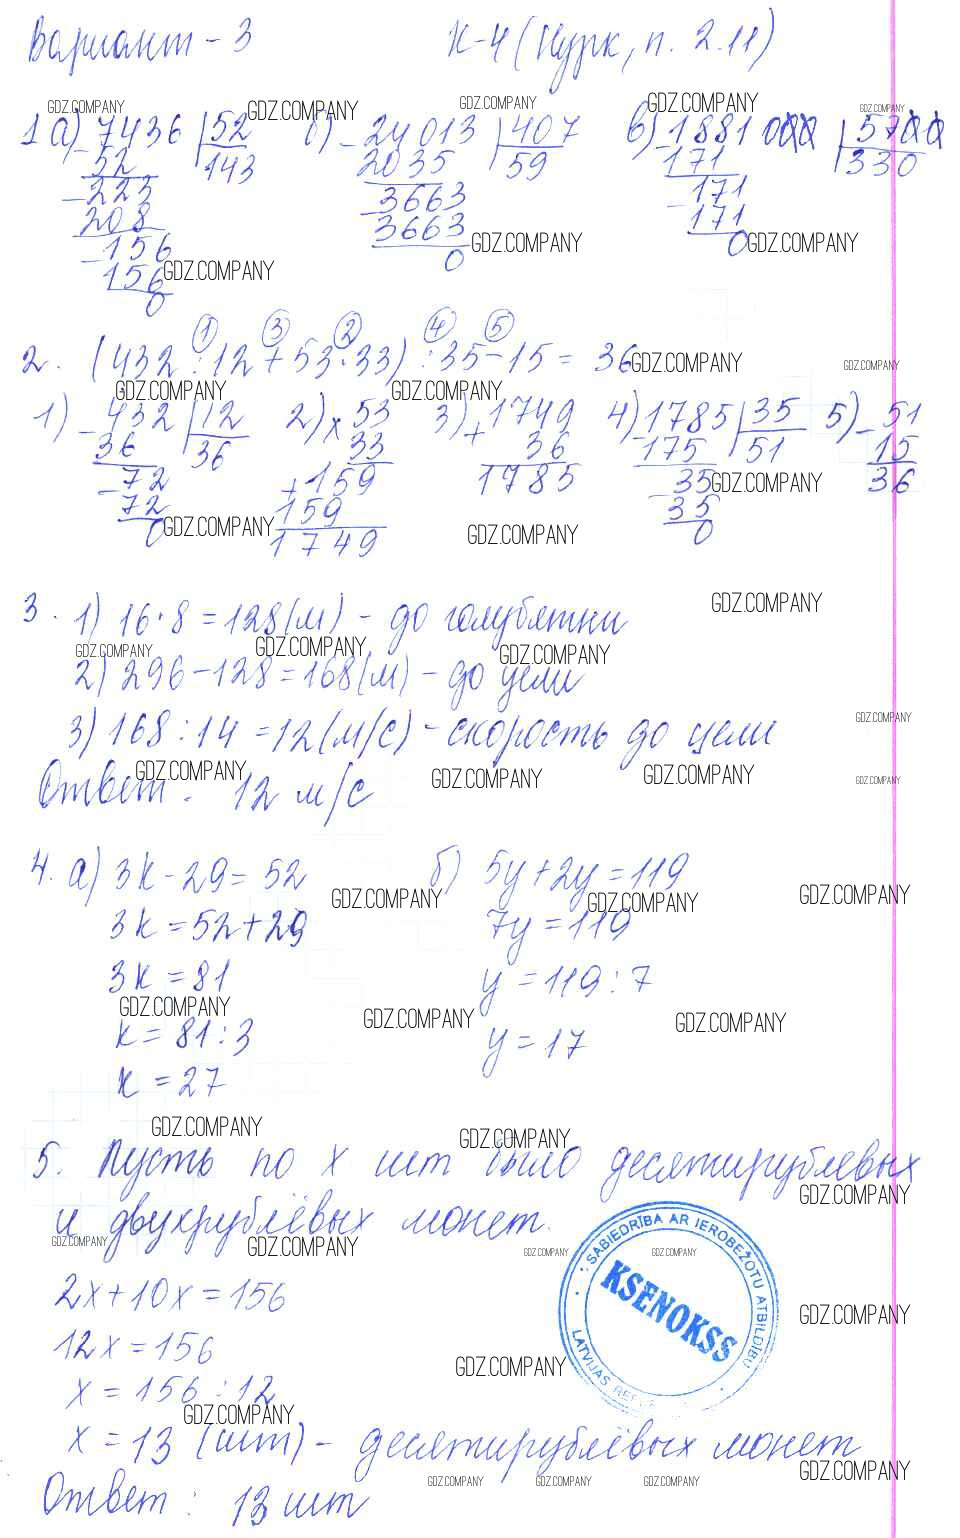 Вариант - 3 К-4 (Нурк, п. 2.11)
GDZ.COMPANY GDZ.COMPANY GDZ.COMPANY GDZ.COMPANY GDZ.COMPANY
1 а) 7436 | 52 б) 24013 | 407 в) 1881000 | 5700
- 52 143 - 2035 59 - 171 330
- 223 - 3663 - 171
208 3663 171
- 156 0 0
156
0
GDZ.COMPANY GDZ.COMPANY GDZ.COMPANY
1 3 2 4 5
2. (432 : 12 + 53 · 33) : 35 - 15 = 36
GDZ.COMPANY GDZ.COMPANY GDZ.COMPANY GDZ.COMPANY
1) - 432 | 12 2) × 53 3) + 1749 4) - 1785 | 35 5) - 51
36 36 33 36 175 51 15
- 72 + 159 1785 - 35 36
72 159 35
0 1749 0
GDZ.COMPANY GDZ.COMPANY GDZ.COMPANY
3. 1) 16 · 8 = 128 (м) - до голубятни
GDZ.COMPANY
GDZ.COMPANY GDZ.COMPANY GDZ.COMPANY
2) 296 - 128 = 168 (м) - до цели
3) 168 : 14 = 12 (м/с) - скорость до цели
GDZ.COMPANY
Ответ: 12 м/с
GDZ.COMPANY GDZ.COMPANY GDZ.COMPANY GDZ.COMPANY
4. а) 3k - 29 = 52 б) 5y + 2y = 119
GDZ.COMPANY GDZ.COMPANY GDZ.COMPANY
3k = 52 + 29 7y = 119
3k = 81 y = 119 : 7
GDZ.COMPANY GDZ.COMPANY GDZ.COMPANY
k = 81 : 3 y = 17
k = 27
GDZ.COMPANY GDZ.COMPANY
5. Пусть по x шт было десятирублевых
GDZ.COMPANY
и двухрублёвых монет.
GDZ.COMPANY GDZ.COMPANY GDZ.COMPANY GDZ.COMPANY
SABIEDRĪBA AR IEROBEŽOTU ATBILDĪBU
KSENOKSS
LATVIJAS
2x + 10x = 156
GDZ.COMPANY
12x = 156
GDZ.COMPANY
x = 156 : 12
GDZ.COMPANY
x = 13 (шт) - десятирублёвых монет
GDZ.COMPANY GDZ.COMPANY GDZ.COMPANY GDZ.COMPANY
Ответ: 13 шт